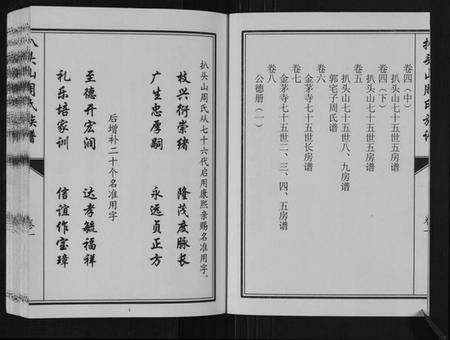 扒头山周氏族谱
卷一
卷四(中)
扒头山七十五世五房谱
卷四(下)
扒头山七十五世五房谱
卷五
扒头山七十五世八、九房谱
郭宅子周氏谱
卷六
金茅寺七十五世长房谱
卷七
金茅寺七十五世二、三、四、五房谱
卷八
公德册(一)
扒头山周氏从七十六代启用康熙亲赐名准用字。
枝兴衍崇绪 隆茂度脉长
广生忠厚嗣 永远贞正方
后增补二十个名准用字
至德开宏润 达孝毓福祥
礼乐培家训 信谊作宝璋
扒头山周氏族谱
卷一